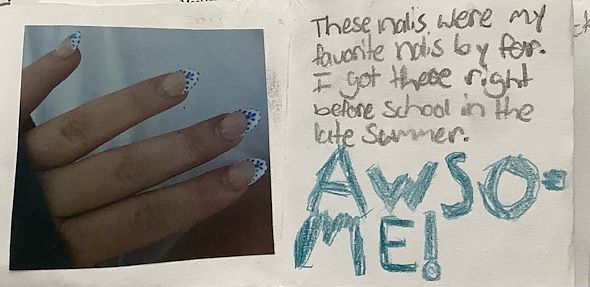 These nalis were my
favorite nalis by far.
I got these right
before school in the
late summer.
AWSO-
ME!